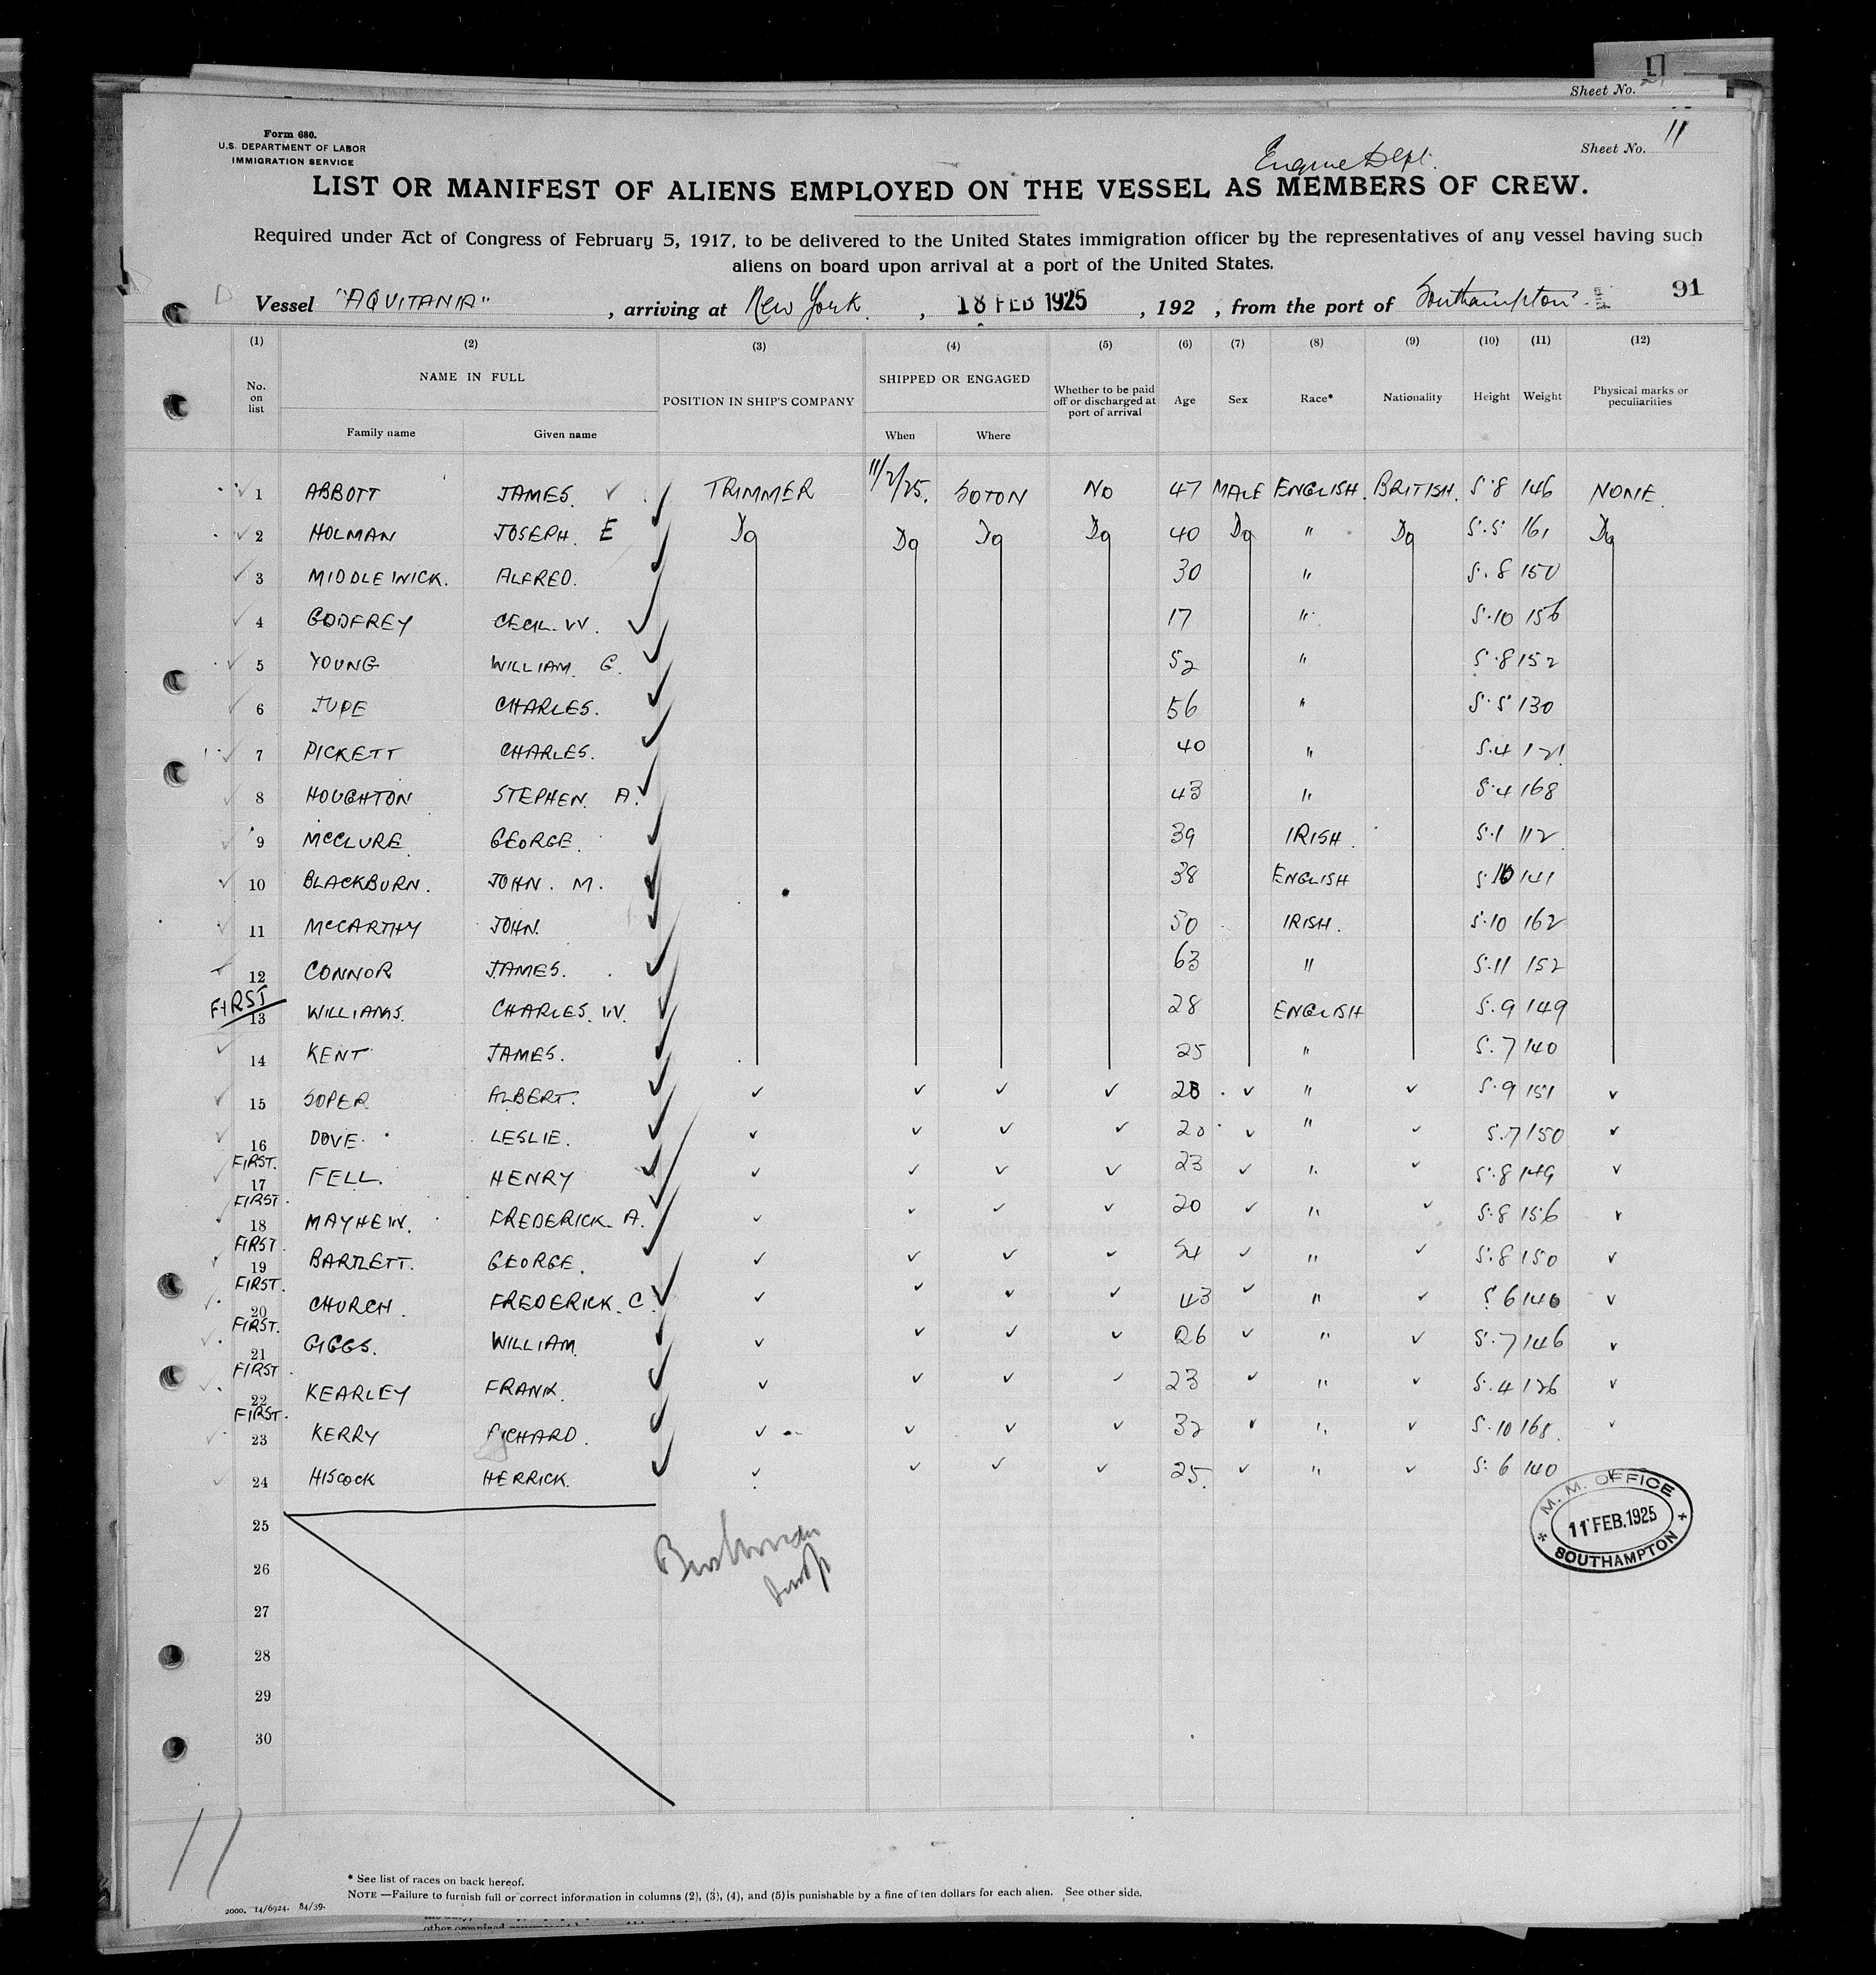 Sheet No.
Form 680.
U.S. DEPARTMENT OF LABOR
IMMIGRATION SERVICE
Engine Dept.
Sheet No. 11
LIST OR MANIFEST OF ALIENS EMPLOYED ON THE VESSEL AS MEMBERS OF CREW.
Required under Act of Congress of February 5, 1917, to be delivered to the United States immigration officer by the representatives of any vessel having such
aliens on board upon arrival at a port of the United States.
Vessel "AQUITANIA", arriving at New York, 18 FEB 1925, 192 , from the port of Southampton 91
(1) (2) (3) (4) (5) (6) (7) (8) (9) (10) (11) (12)
No. on list NAME IN FULL POSITION IN SHIP'S COMPANY SHIPPED OR ENGAGED Whether to be paid off or discharged at port of arrival Age Sex Race* Nationality Height Weight Physical marks or peculiarities
Family name Given name When Where
1 ABBOTT JAMES. TRIMMER 11/2/25. SOTON NO 47 MALE ENGLISH. BRITISH. 5.8 146 NONE.
2 HOLMAN JOSEPH. E Do Do Do Do 40 Do " Do 5.5 161 Do
3 MIDDLEWICK. ALFRED. 30 " 5.8 150
4 GODFREY CECIL. W. 17 " 5.10 156
5 YOUNG WILLIAM. G. 52 " 5.8 152
6 JUPE CHARLES. 56 " 5.5 130
7 PICKETT CHARLES. 40 " 5.4 121
8 HOUGHTON STEPHEN. A. 43 " 5.4 168
9 McCLURE. GEORGE. 39 IRISH. 5.1 112
10 BLACKBURN. JOHN. M. 38 ENGLISH 5 10 141
11 McCARTHY JOHN. 50 IRISH. 5.10 162
12 CONNOR JAMES. 63 " 5.11 152
FIRST
13 WILLIAMS. CHARLES. W. 28 ENGLISH 5.9 149
14 KENT JAMES. 25 " 5.7 140
15 SOPER ALBERT. 28 " 5.9 151
16 DOVE. LESLIE. 20 " 5.7 150
FIRST.
17 FELL. HENRY 23 " 5.8 149
FIRST.
18 MAYHEW. FREDERICK. A. 20 " 5.8 156
FIRST.
19 BARTLETT. GEORGE. 54 " 5.8 150
FIRST.
20 CHURCH. FREDERICK. C. 43 " 5 6 140
FIRST.
21 GIGGS. WILLIAM. 26 " 5.7 146
FIRST
22 KEARLEY FRANK. 23 " 5.4 126
FIRST.
23 KERRY RICHARD. 32 " 5.10 168.
24 HISCOCK HERRICK. 25. " 5.6 140
M. M. OFFICE
11 FEB. 1925
SOUTHAMPTON
25
26
27
28
29
30
11
* See list of races on back hereof.
NOTE —Failure to furnish full or correct information in columns (2), (3), (4), and (5) is punishable by a fine of ten dollars for each alien. See other side.
2000. 14/6924. 84/39.